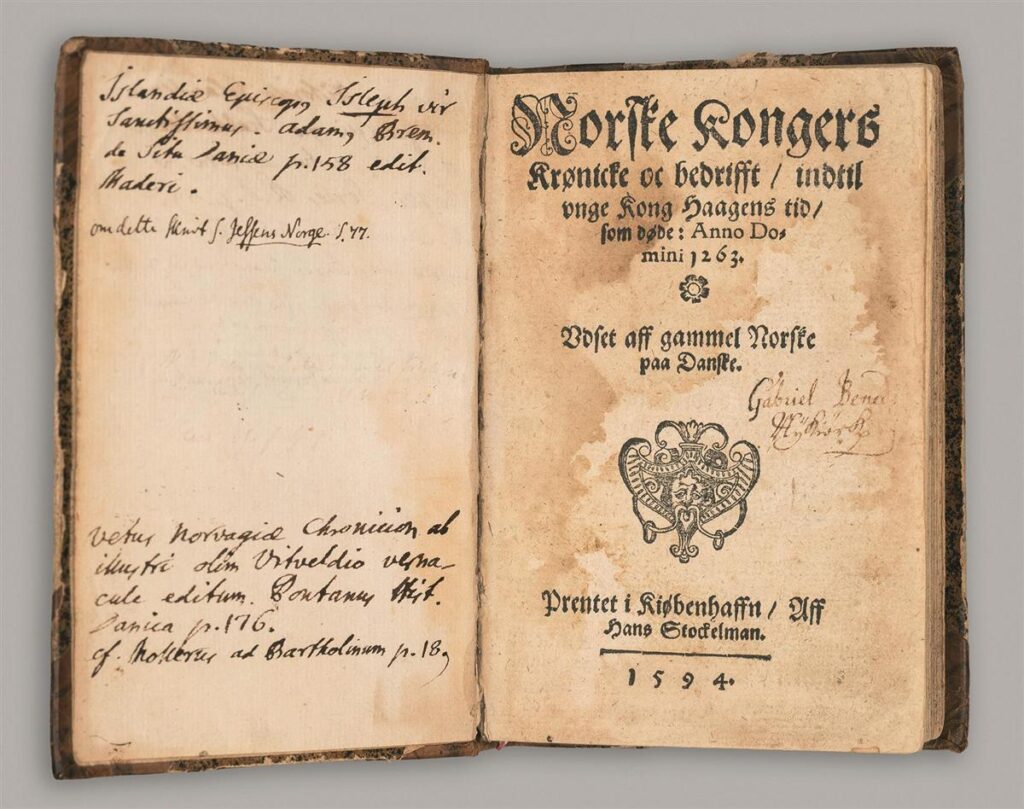 Islandiæ Episcopus Isleph vir
Sanctissimus. Adamus Brem.
de Situ Daniæ p. 158 edit.
Maderi.
om dette skrivt s. Jessens Norge. S. 77.
vetus Norvagiæ Chronicion ab
illustri olim Vitveldio verna-
cule editum. Pontanus Hist.
Danica p. 176.
cf. Mollerus ad Bartholinum p. 18,
Norske Kongers
Krønicke oc bedrifft / indtil
vnge Kong Haagens tid /
som døde: Anno Do-
mini 1263.
Vdset aff gammel Norske
paa Danske.
Gabriel
Prentet i Kiøbenhaffn / Aff
Hans Stockelman.
1594.